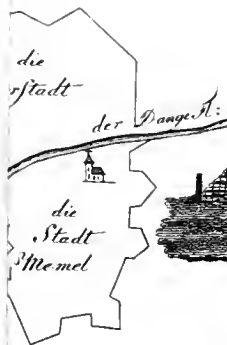 die
rstadt
der Dange Fl:
die
Stadt
Memel